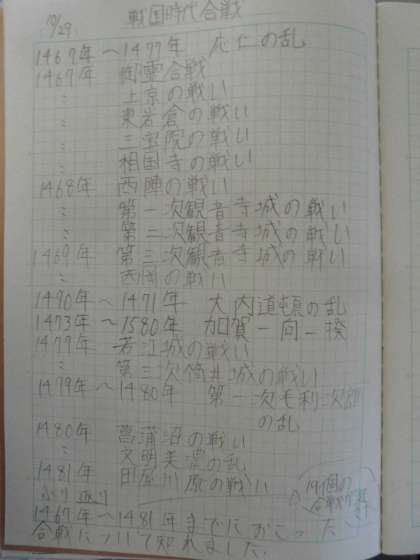 10/29.
戦国時代合戦
1467年〜1477年 応仁の乱
1467年 御霊合戦
〃 上京の戦い
〃 東岩倉の戦い
〃 三宝院の戦い
〃 相国寺の戦い
1468年 西陣の戦い
〃 第一次観音寺城の戦い
〃 第二次観音寺城の戦い
1469年 第三次観音寺城の戦い
〃 西岡の戦い
1470年〜1471年 大内道頓の乱
1473年〜1580年 加賀一向一揆
1477年 若江城の戦い
〃 第三次筒井城の戦い
1479年〜1480年 第一次毛利次郎
の乱
1480年 菖蒲沼の戦い
〃 文明美濃の乱
1481年 田屋川原の戦い
ふり返り
19個の
合戦が
1467年〜1481年までにおこった
合戦について知れました。